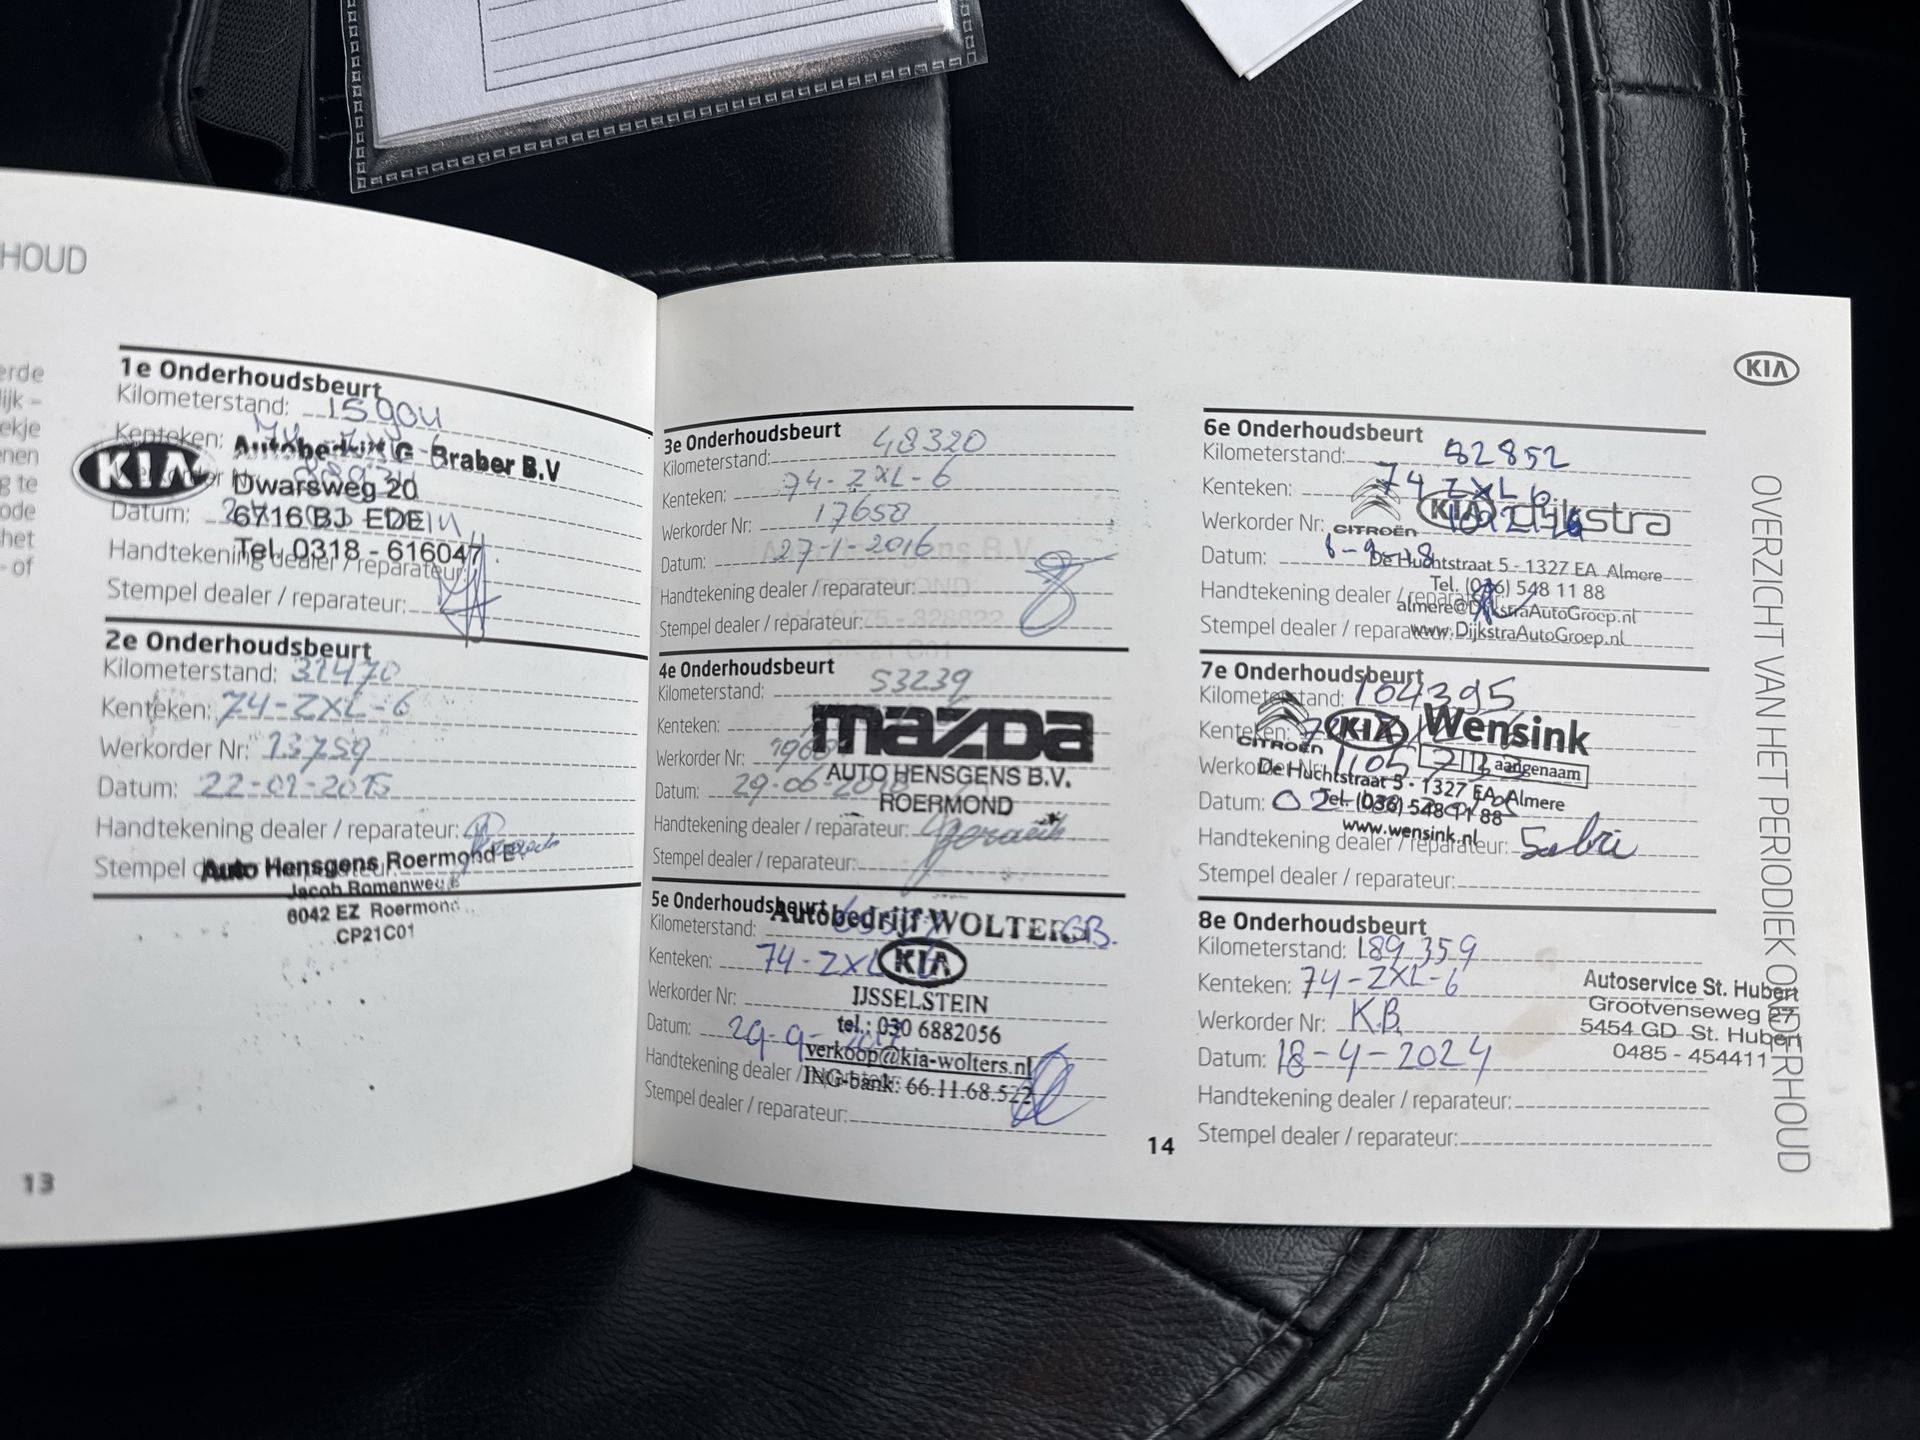 HOUD
erde
ijk -
ekje
nen
g te
ode
het
- of
1e Onderhoudsbeurt
Kilometerstand:
Kenteken:
KIA
Autobedrijf G Braber B.V
Dwarsweg 20
Datum:
6716 BJ EDE
Handtekening dealer / reparateur:
Tel. 0318 - 616047
Stempel dealer / reparateur:
2e Onderhoudsbeurt
Kilometerstand: 31470
Kenteken: 74-ZXL-6
Werkorder Nr: 13759
Datum: 22-01-2015
Handtekening dealer / reparateur:
Stempel
Auto Hensgens Roermond
6042 EZ Roermond
CP21C01
13
3e Onderhoudsbeurt
Kilometerstand: 48320
Kenteken: 74-ZXL-6
Werkorder Nr: 17658
Datum: 27-1-2016
Handtekening dealer / reparateur:
Stempel dealer / reparateur:
4e Onderhoudsbeurt
Kilometerstand: 53239
Kenteken:
mazda
Werkorder Nr:
AUTO HENSGENS B.V.
Datum: 29-06-
ROERMOND
Handtekening dealer / reparateur:
Stempel dealer / reparateur:
5e Onderhoudsbeurt
Autobedrijf WOLTERS
Kilometerstand:
Kenteken: 74-ZXL
KIA
Werkorder Nr:
IJSSELSTEIN
Datum: 29-9-
tel.: 030 6882056
verkoop@kia-wolters.nl
Handtekening dealer /
ING-bank: 66.11.68.522
Stempel dealer / reparateur:
14
KIA
6e Onderhoudsbeurt
Kilometerstand: 82852
Kenteken: 74 ZXL 6
Werkorder Nr:
CITROËN KIA dijkstra
Datum:
De Huchtstraat 5 - 1327 EA Almere
Tel. (036) 548 11 88
Handtekening dealer /
almere@DijkstraAutoGroep.nl
Stempel dealer / reparateur:
www.DijkstraAutoGroep.nl
7e Onderhoudsbeurt
Kilometerstand: 104395
Kenteken:
CITROËN KIA Wensink
aangenaam
De Huchtstraat 5 - 1327 EA Almere
Datum:
Tel. (036) 548 11 88
www.wensink.nl
Handtekening dealer / reparateur:
Stempel dealer / reparateur:
8e Onderhoudsbeurt
Kilometerstand: 189.359
Kenteken: 74-ZXL-6
Werkorder Nr: K.B.
Datum: 18-4-2024
Autoservice St. Hubert
Grootvenseweg 27
5454 GD St. Hubert
0485 - 454411
Handtekening dealer / reparateur:
Stempel dealer / reparateur:
OVERZICHT VAN HET PERIODIEK ONDERHOUD